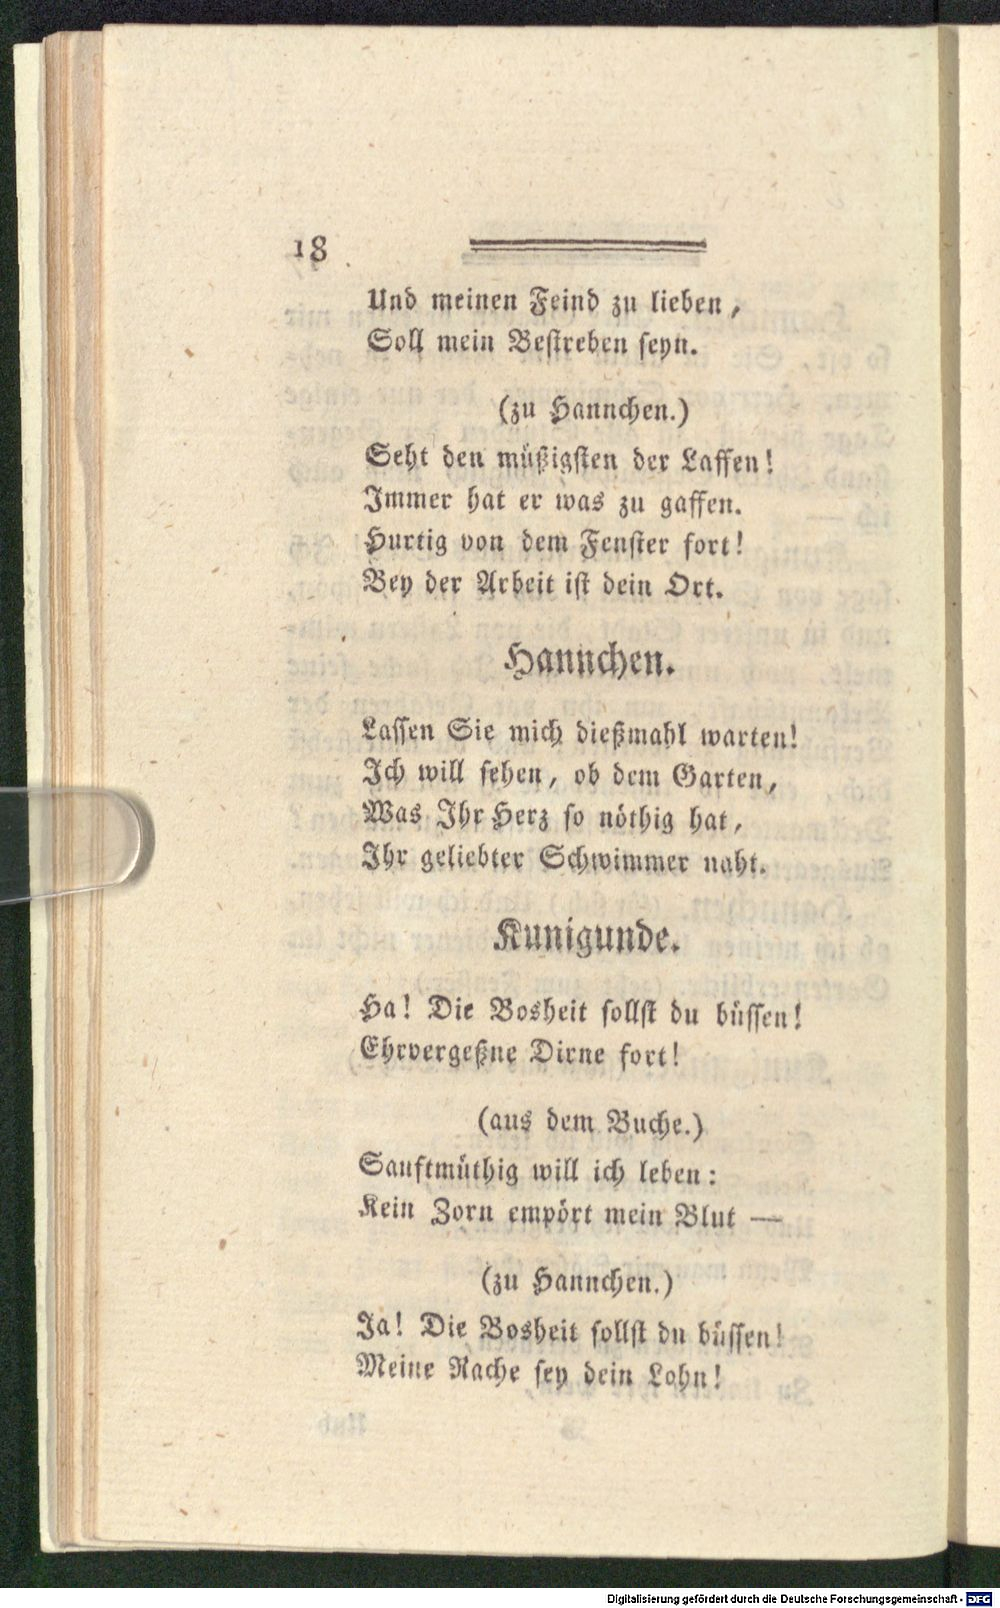 18
Und meinen Feind zu lieben,
Soll mein Bestreben seyn.
(zu Hannchen.)
Seht den müßigsten der Laffen!
Immer hat er was zu gaffen.
Hurtig von dem Fenster fort!
Bey der Arbeit ist dein Ort.
Hannchen.
Lassen Sie mich dießmahl warten!
Ich will sehen, ob dem Garten,
Was Ihr Herz so nöthig hat,
Ihr geliebter Schwimmer naht.
Kunigunde.
Ha! Die Bosheit sollst du büssen!
Ehrvergeßne Dirne fort!
(aus dem Buche.)
Sanftmüthig will ich leben:
Kein Zorn empört mein Blut —
(zu Hannchen.)
Ja! Die Bosheit sollst du büssen!
Meine Rache sey dein Lohn!
Digitalisierung gefördert durch die Deutsche Forschungsgemeinschaft - DFG